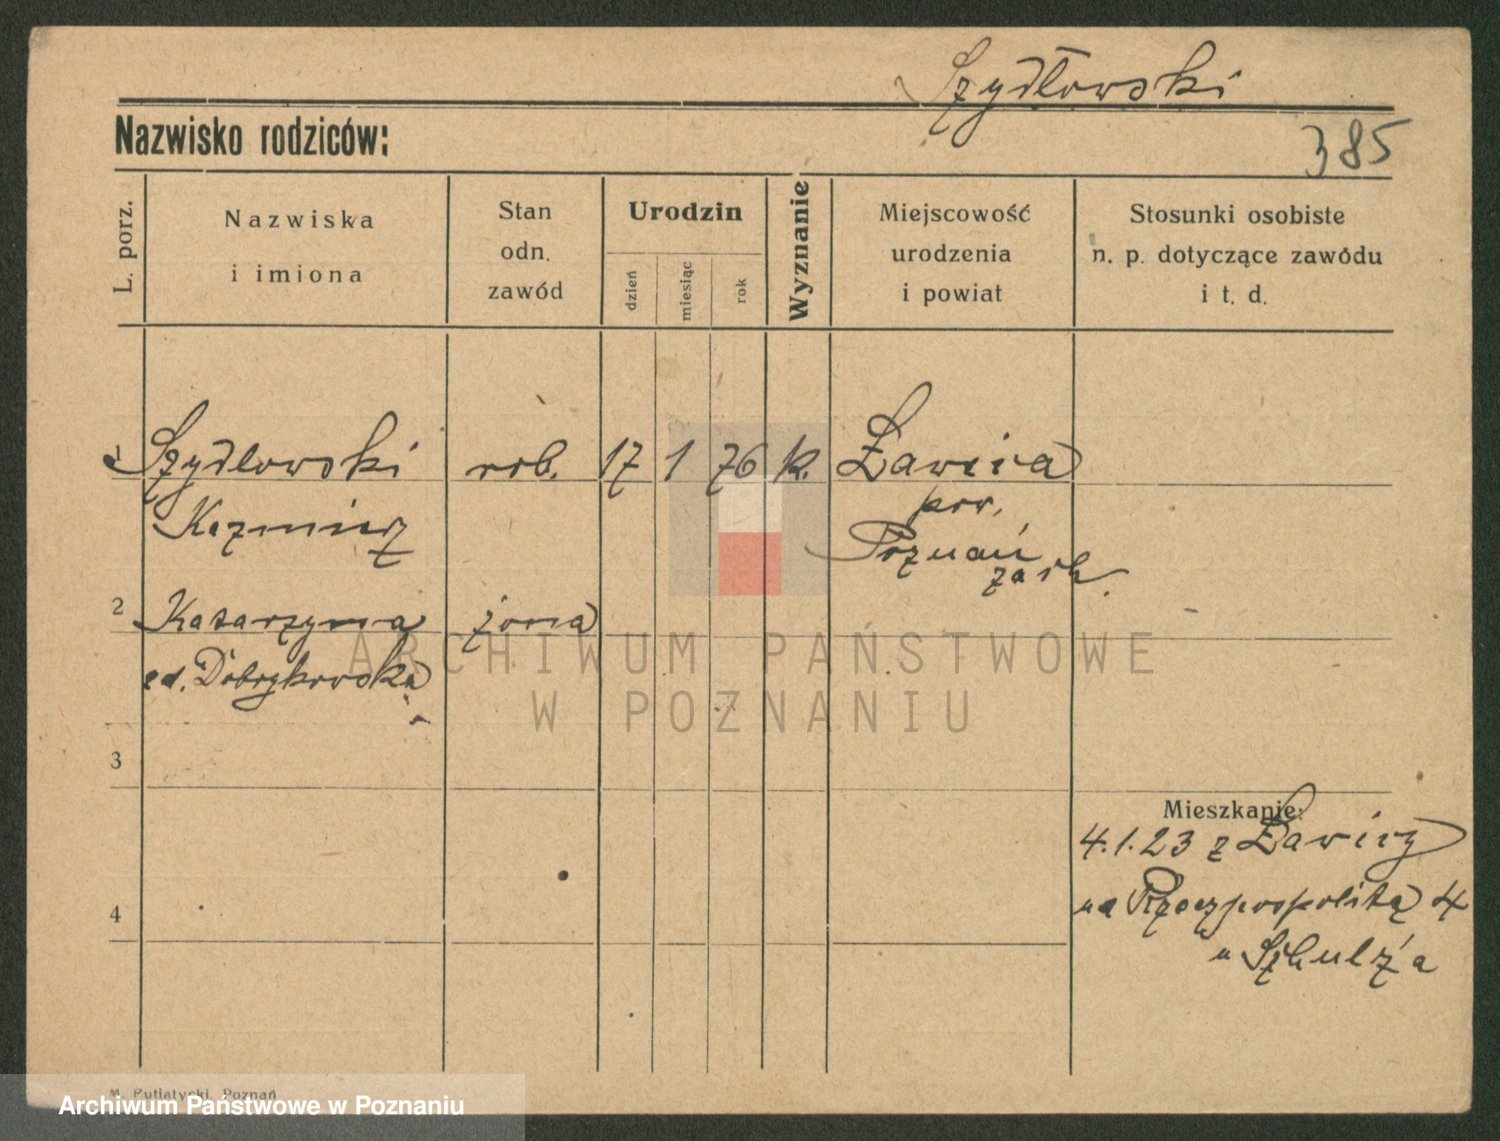 Szydłowski
Nazwisko rodziców:
385
L. porz.
Nazwiska
i imiona
Stan
odn.
zawód
Urodzin
dzień
miesiąc
rok
Wyznanie
Miejscowość
urodzenia
i powiat
Stosunki osobiste
n. p. dotyczące zawodu
i t. d.
1 Szydlowski rob. 17 1 76 k. Ławica
Kazmierz pow.
Poznań
zach.
2 Katarzyna żona
Dobrykowska
ARCHIWUM PAŃSTWOWE
W POZNANIU
3
Mieszkanie:
4.1.23 z Ławicy
4 na Rzeczpospolitą 4
u Szhulz'a
M. Putiatycki, Poznań
Archiwum Państwowe w Poznaniu